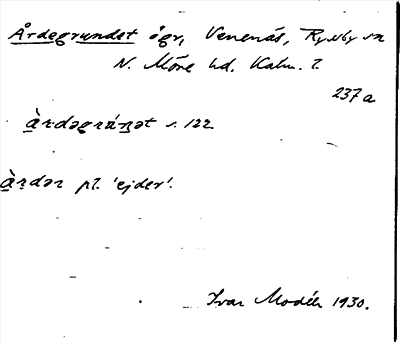 Årdegrundet ögr, Venenäs, Ryssby sn
N. Möre hd. Kalm. l.
237a
àrdəgrúnət s. 122
àrdər pl. 'ejder'.
Ivar Modéer 1930.